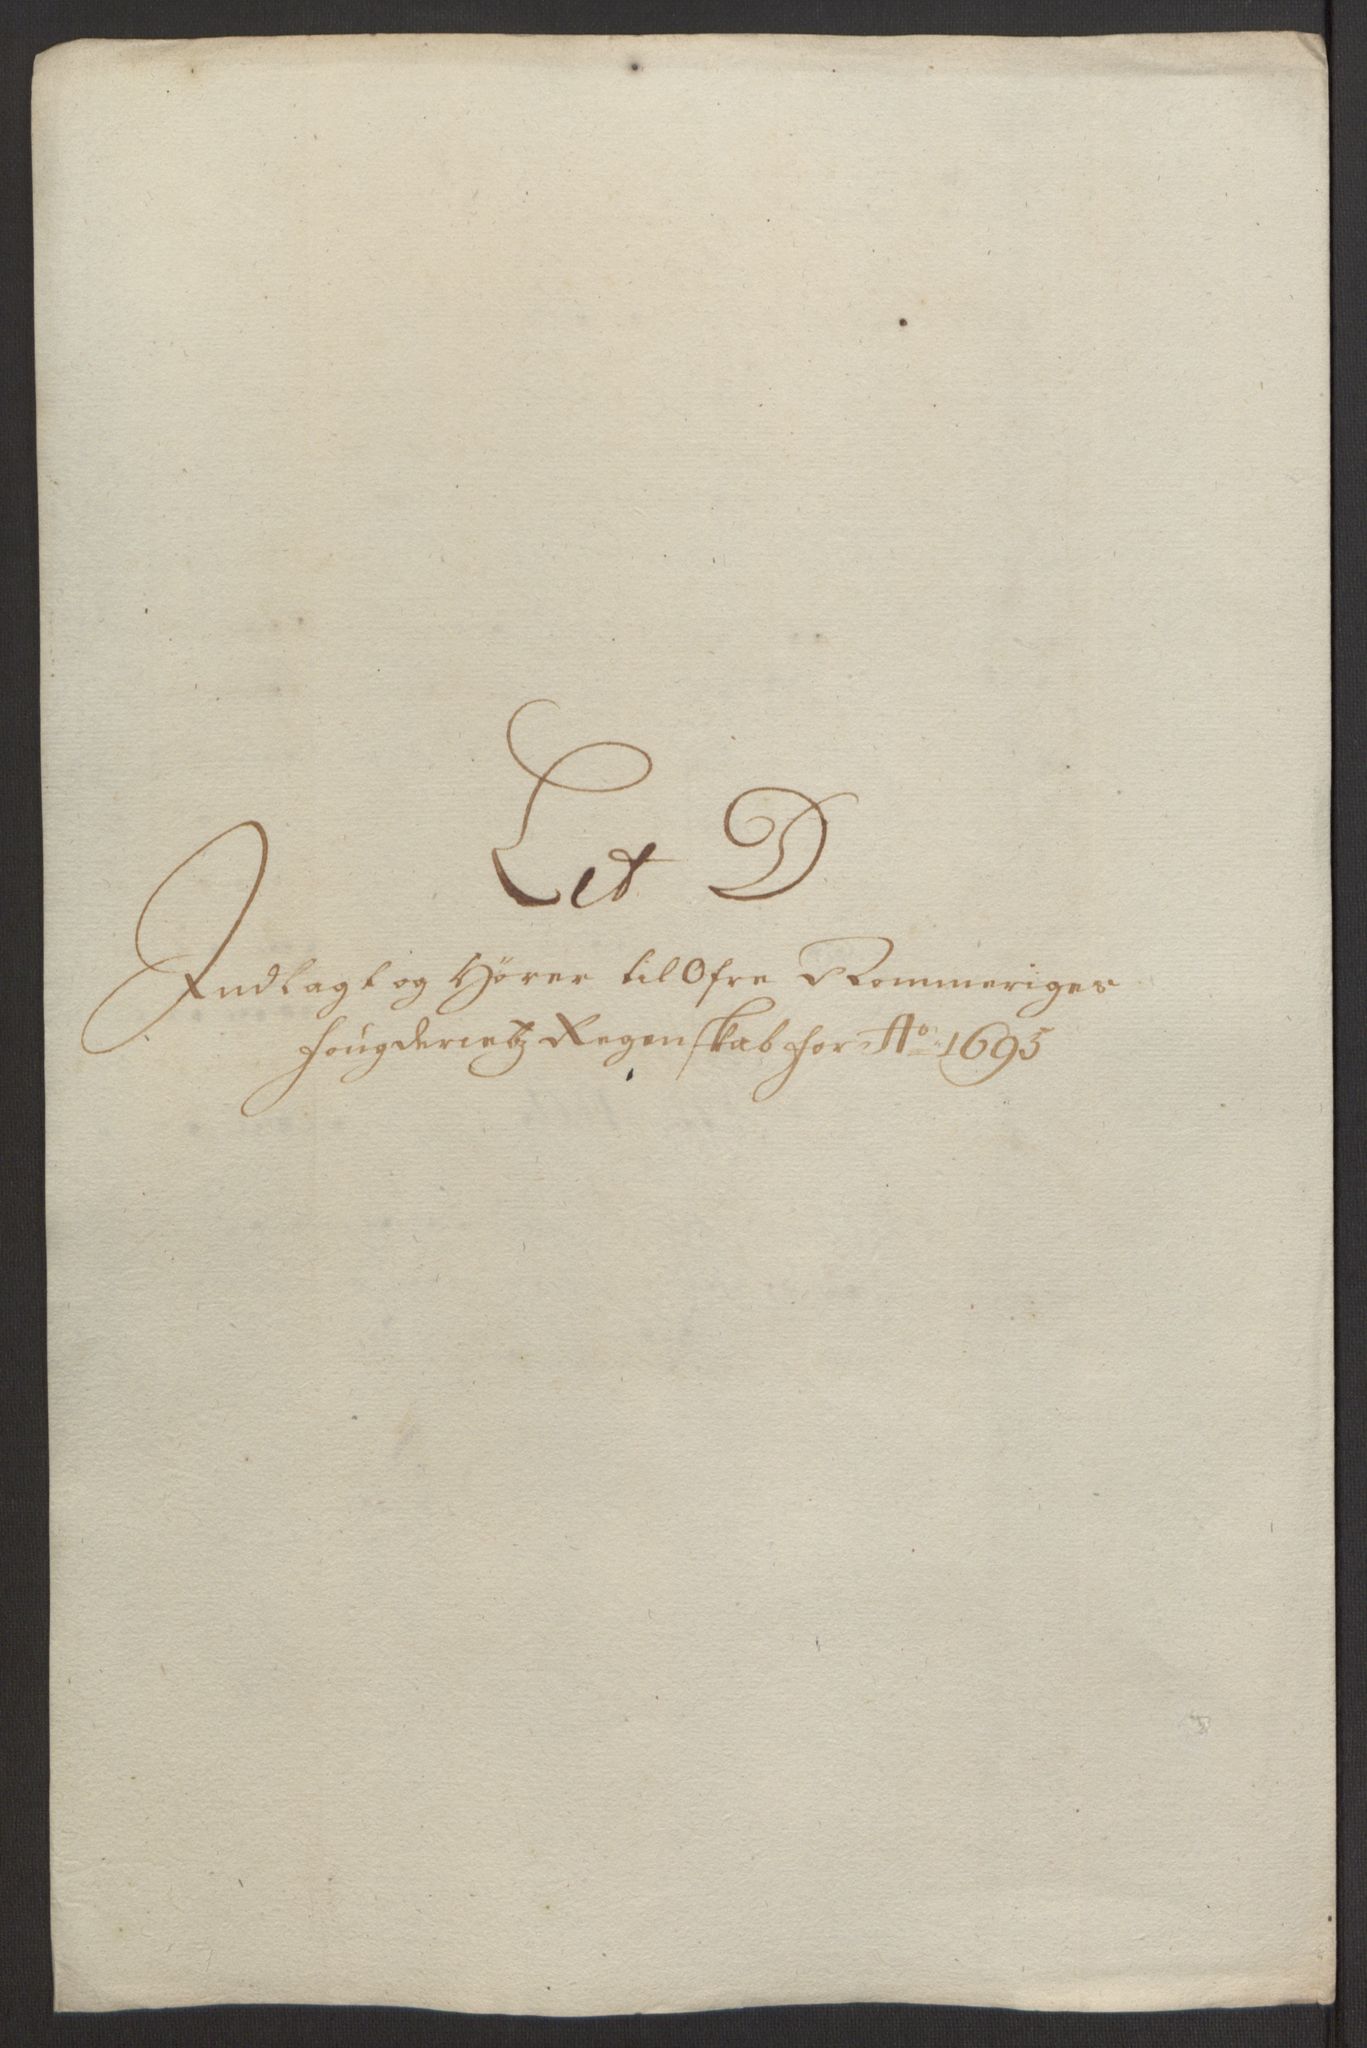 Lit D
Indlagt og Hører til Ofre Rommeriges
fougderietz Regenskab for Ao 1695